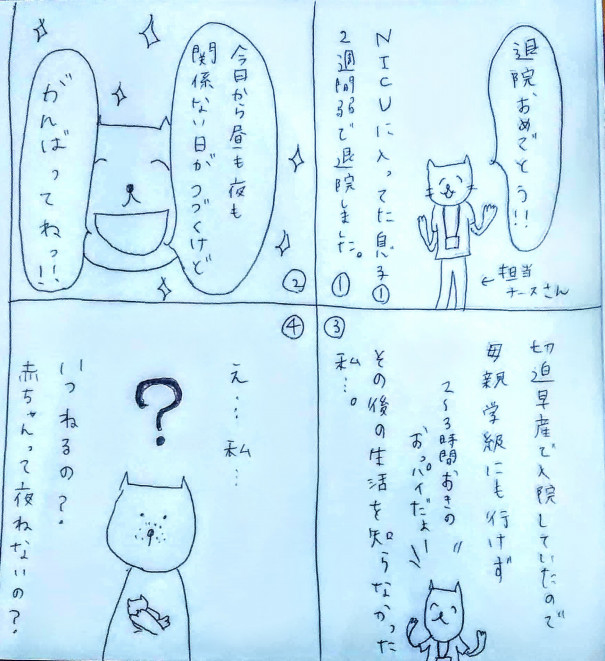 ①
退院おめでとう!!
←担当
ナースさん
NICUに入ってた息子①
2週間弱で退院しました。
②
今日から昼も夜も
関係ない日がつづくけど
がんばってねっ!!
③
切迫早産で入院していたので
母親学級にも行けず
2~3時間おきの
おっパイだよー
その後の生活を知らなかった
私…。
④
え…私…
?
いつねるの?
赤ちゃんって夜ねないの?